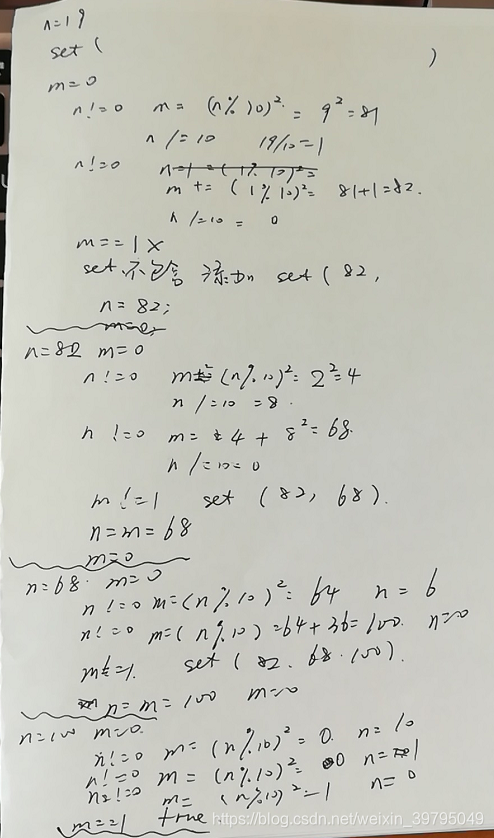 n=19
set (                )
m=0
n!=0 m= (n%10)²= 9²=81
n/=10 19/10=1
n!=0 n=1=(1%10)²=
m+=(1%10)²= 81+1=82.
n/=10= 0
m==1×
set 不包含 添加n set(82,
n=82;
m=0;
n=82 m=0
n!=0 m= (n%10)²=2²=4
n/=10 =8.
n!=0 m= 4+8²=68.
n/=10=0
m!=1 set (82, 68).
n=m=68
m=0
n=68. m=0
n!=0 m=(n%10)²= 64 n=6
n!=0 m=(n%10)=64+36=100. n=0
m!=1. set (82. 68. 100).
n=m=100 m=0
n=100 m=0.
n!=0 m= (n%10)²=0. n=10
n!=0 m= (n%10)²= 0 n=1
n!=0 m= (n%10)²=1 n=0
m==1 true
https://blog.csdn.net/weixin_39795049